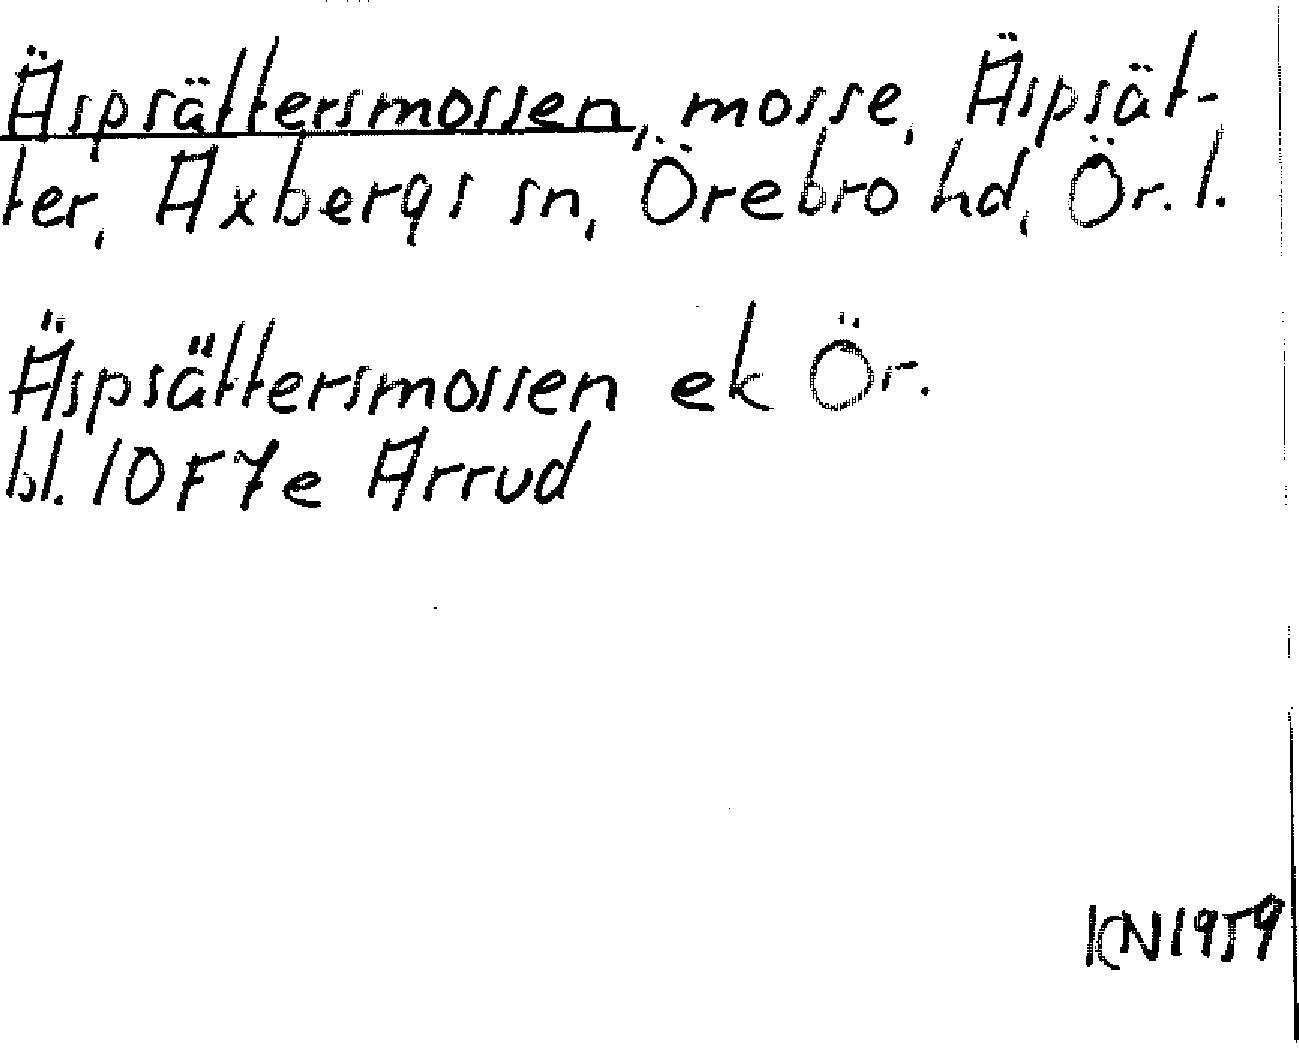 Äspsättersmossen, mosse, Äspsät-
ter, Axbergs sn, Örebro hd, Ör. l.
Äspsättersmossen ek Ör.
bl. 10F7e Arrud
KN1959